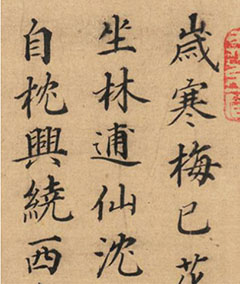 歲寒梅已花
坐林逋仙沈
自枕興繞西